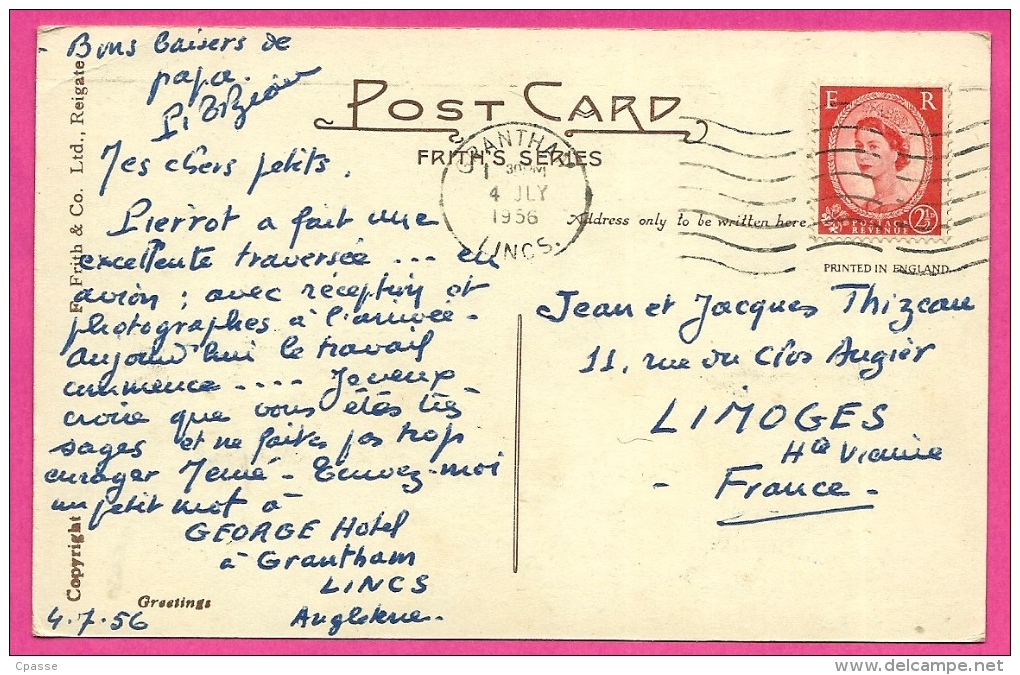 Bons baisers de
papa.
Mes chers petits.
Pierrot a fait une
excellente traversée ... en
avion ; avec réception et
photographes à l'arrivée -
aujourd'hui le travail
commence .... Je veux
croire que vous êtes très
sages et ne faites pas trop
enrager Mémé - Envoyez-moi
un petit mot à
GEORGE Hotel
à Grantham
LINCS
Angleterre -
4.7.56
Greetings
Copyright F. Frith & Co. Ltd., Reigate
POST CARD
FRITH'S SERIES
GRANTHAM
30 PM
4 JLY
1956
LINCS.
Address only to be written here
E R
REVENUE 2½D
PRINTED IN ENGLAND.
Jean et Jacques Thizeau
11, rue du Clos Augier
LIMOGES
Hte Vienne
- France -
Cpasse
www.delcampe.net